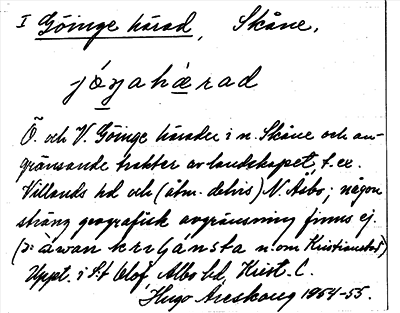 I Göinge härad, Skåne.
jöyahärad
Ö. och V. Göinge härader i n. Skåne och an-
gränsande trakter av landskapet, t. ex.
Villands hd och (åtm. delvis) N. Åsbo; någon
sträng geografisk avgränsning finns ej.
(ɔ: åwan n. om Kristianstad)
Uppt. i S:t Olof Albo hd, Krist. l.
Hugo Areskoug 1954-55.